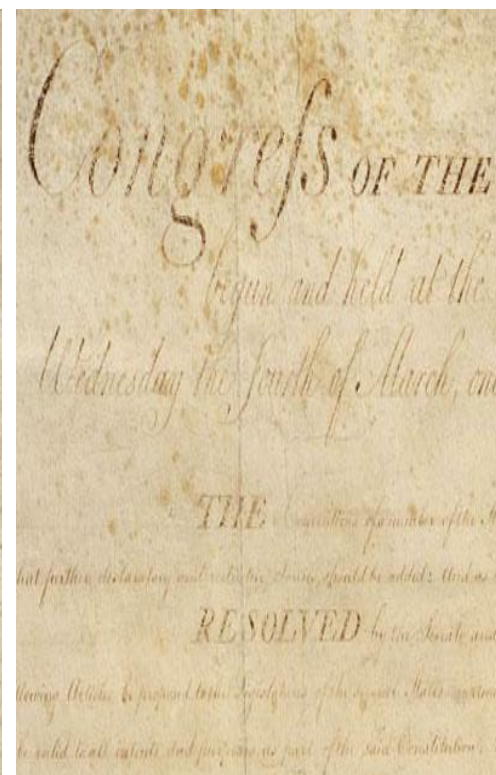 Congreſs OF THE
begun and held at the
Wednesday the fourth of March, one
THE Conventions of a number of the
hat further declaratory and restrictive clauses should be added: And as
RESOLVED by the Senate and
llowing Articles be proposed to the Legislatures of the several States
be valid to all intents and purposes as part of the said Constitution;